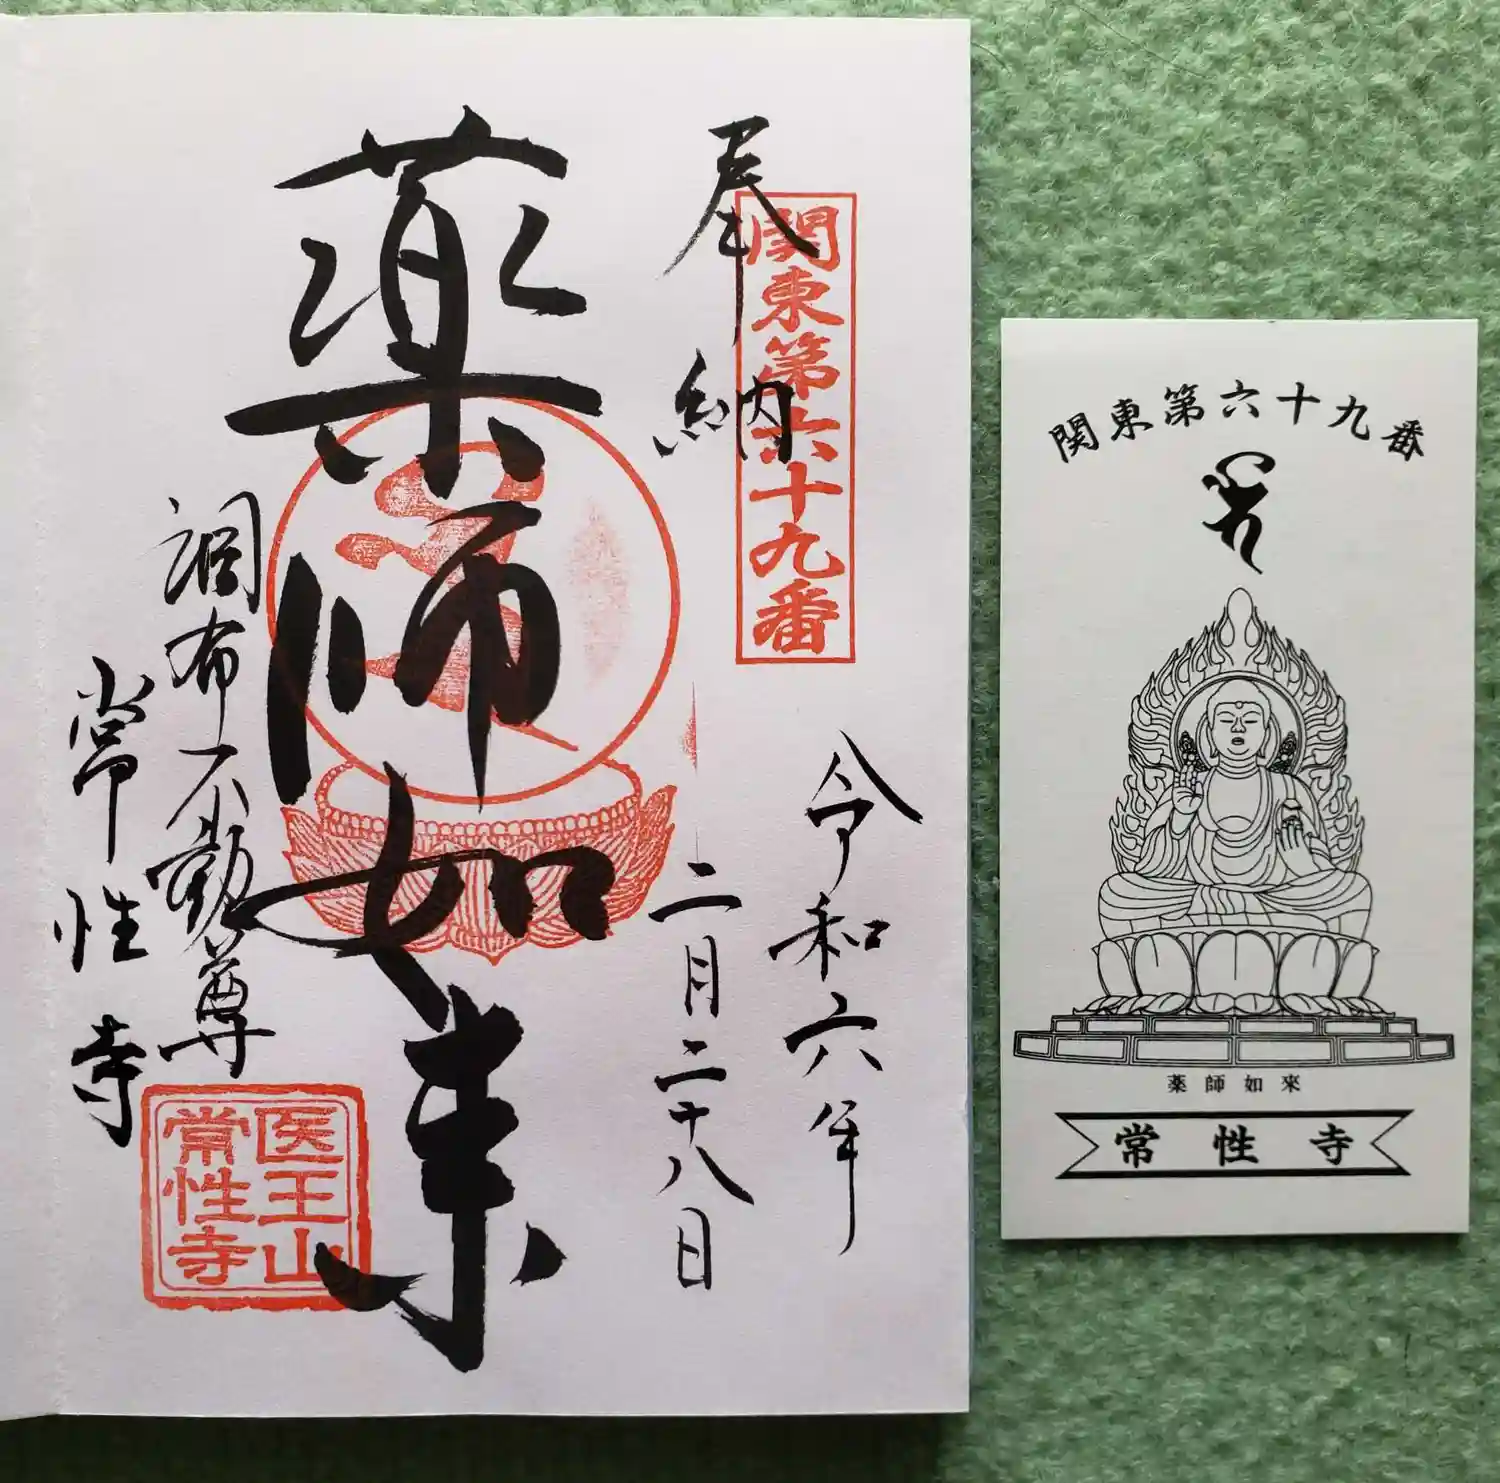 奉納
関東第六十九番
令和六年
二月二十八日
薬師如来
調布不動尊
常性寺
医王山
常性寺
関東第六十九番
薬師如來
常性寺